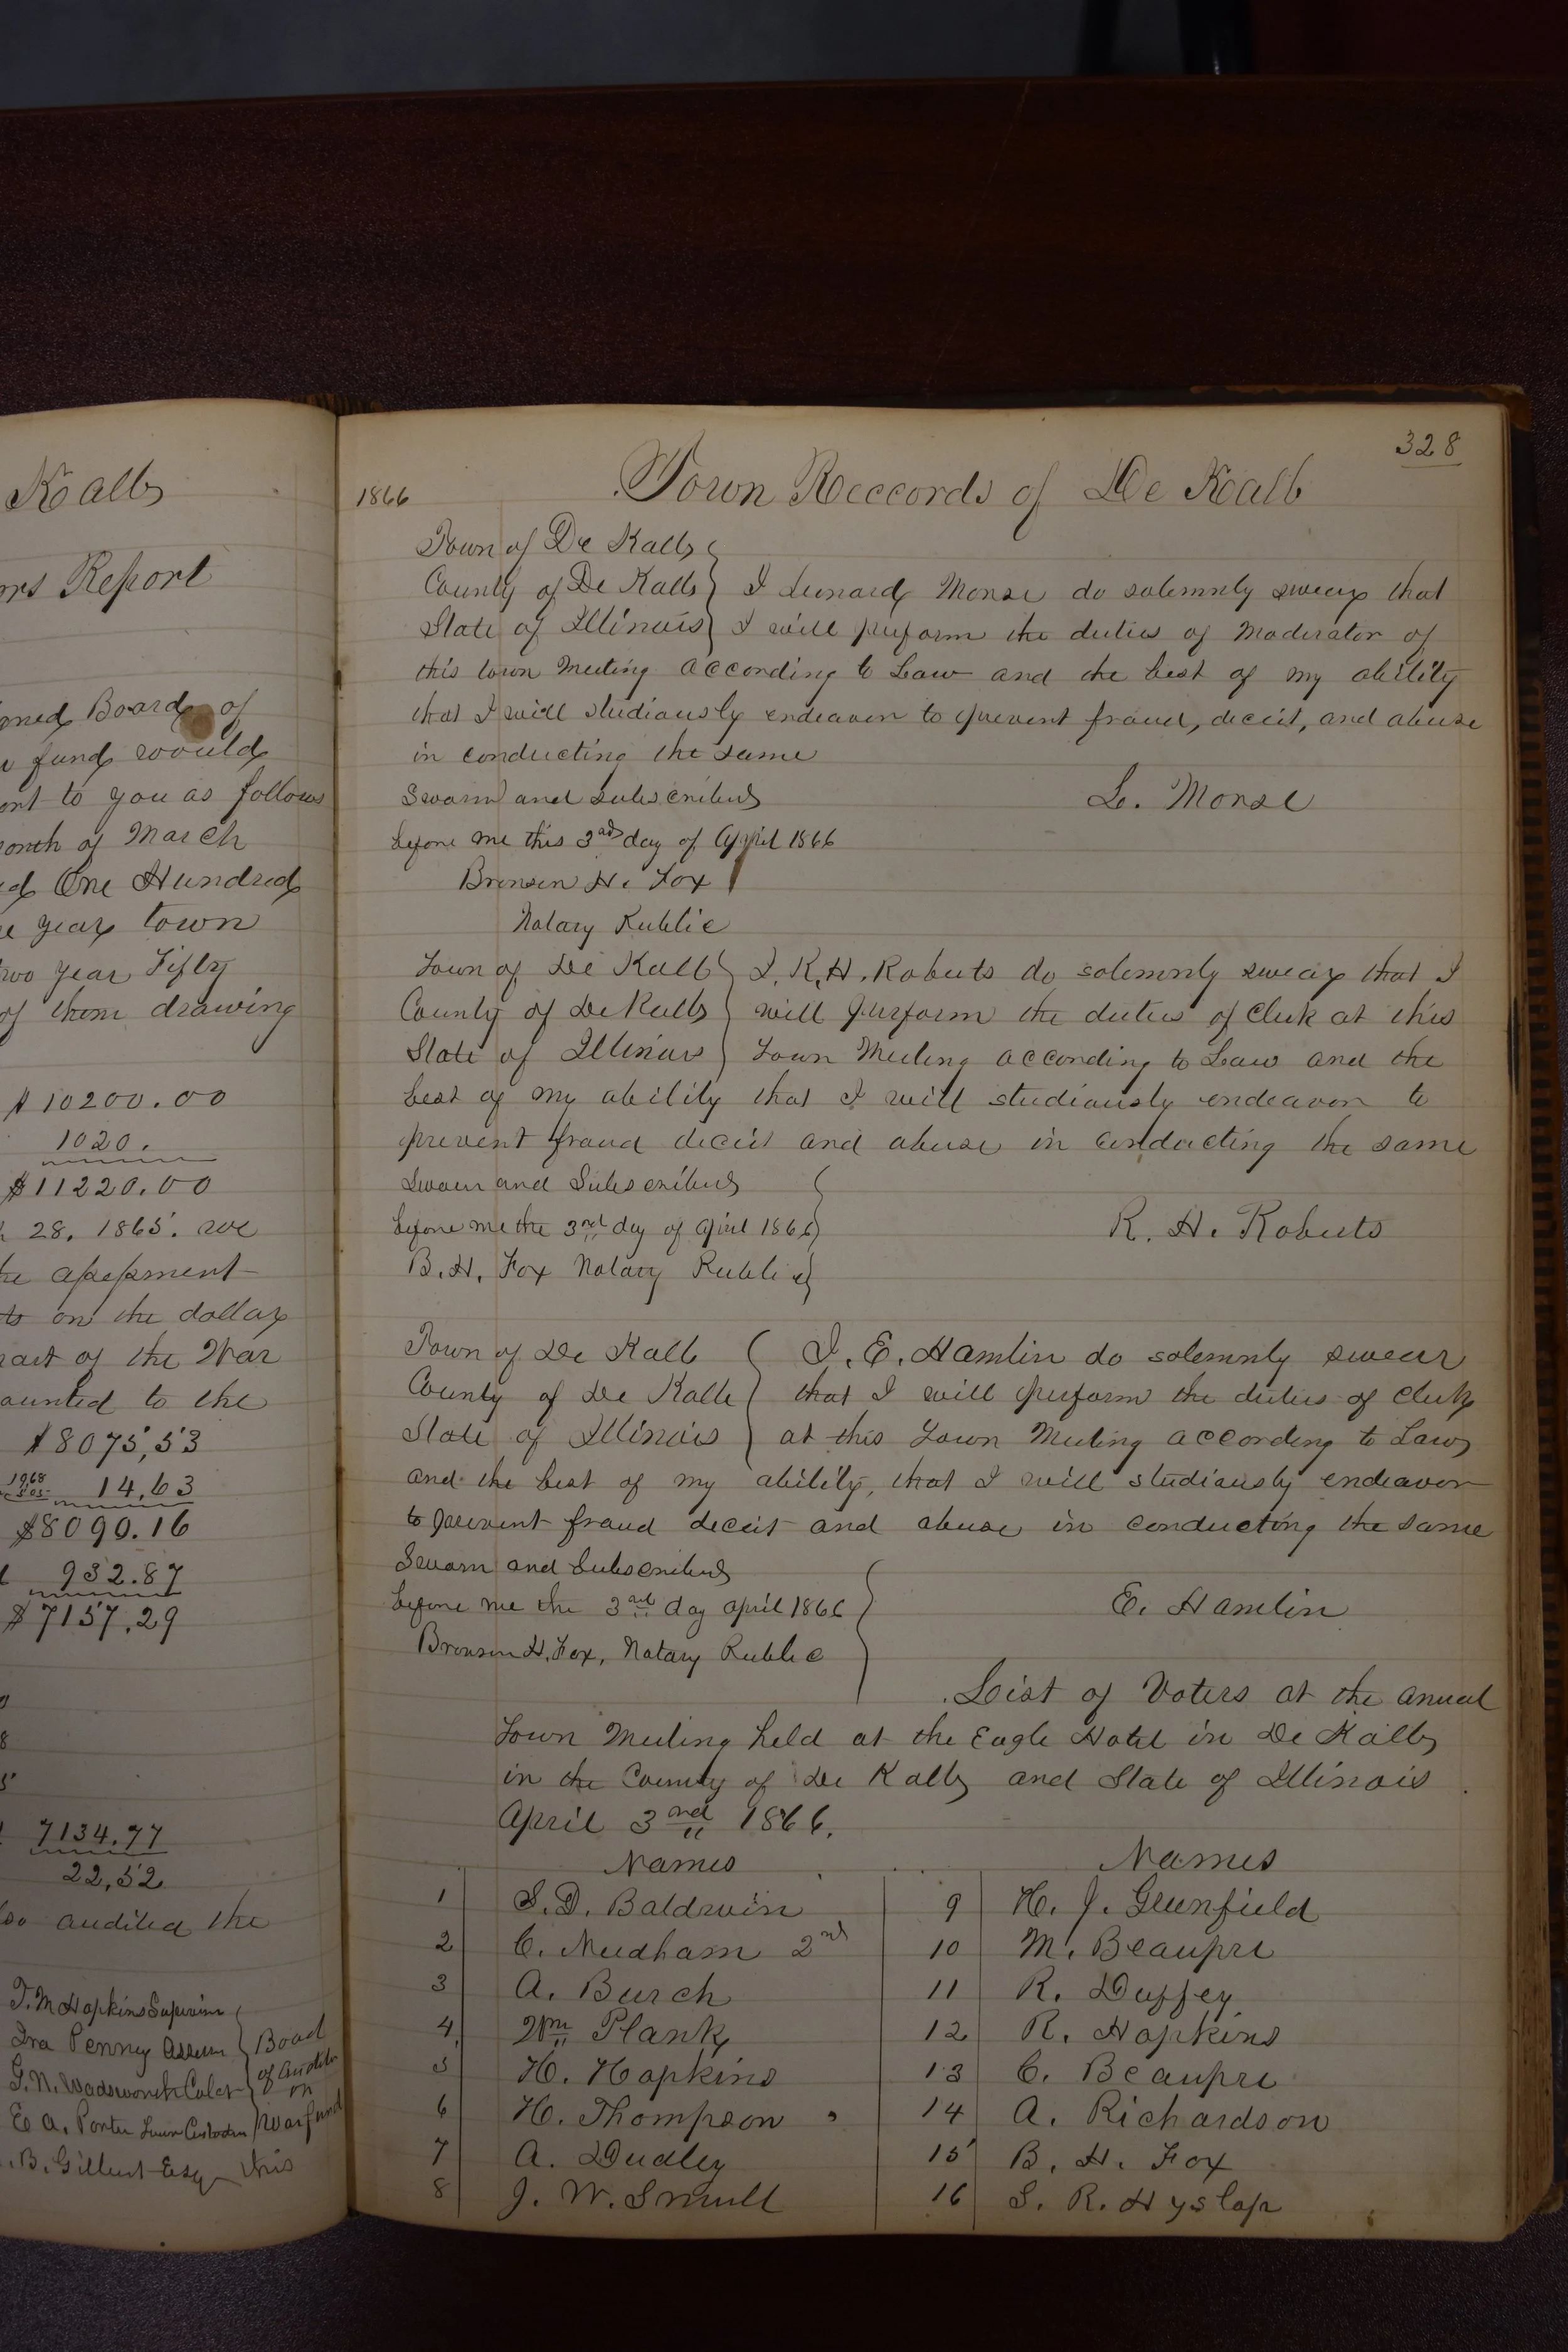 Kalb
Report
Board of
fund would
to you as follows
of March
One Hundred
year town
year Fifty
of them drawing
$10200.00
1020.
$11220.00
28. 1865. we
on the dollar
of the War
to the
$8075,53
14,63
$8090.16
932.87
$7157,29
7134.77
22,52
audited the
T. M Hopkins
Ira Penney
G. N. Wadsworth
E A. Porter
B. Gilbert Esq
Board
of
on
War fund
this
328
1866 Town Reccords of De Kalb
Town of De Kalb
County of De Kalb I Leonard Morse do solemnly swear that
State of Illinois I will preform the duties of Moderator of
this town Meeting according to Law and the best of my ability
that I will studiously endeavor to prevent fraud, deceit, and abuse
in conducting the same
Sworn and subscribed L. Morse
before me this 3rd day of April 1866
Bronson H. Fox
Notary Public
Town of De Kalb I, R, H. Roberts do solemnly swear that I
County of De Kalb will preform the duties of Clerk at this
State of Illinois Town Meeting according to Law and the
best of my ability that I will studiously endeavor to
prevent fraud deceit and abuse in conducting the same
Sworn and Subscribed
before me the 3rd day of April 1866 R. H. Roberts
B. H. Fox Notary Public
Town of De Kalb I. E. Hamlin do solemnly swear
County of De Kalb that I will preform the duties of Clerk
State of Illinois at this Town Meeting according to Law
and the best of my ability, that I will studiously endeavor
to prevent fraud deceit and abuse in conducting the same
Sworn and Subscribed
before me the 3rd day April 1866 E. Hamlin
Bronson H. Fox, Notary Public
List of Voters at the anual
Town Meeting held at the Eagle Hotel in De Kalb
in the County of De Kalb and State of Illinois
April 3nd 1866.
Names Names
1 S. D. Baldwin 9 H. J. Greenfield
2 C. Needham 2nd 10 M. Beaupre
3 A. Burch 11 R. Duffey
4 Wm Plank 12 R. Hopkins
5 H. Hopkins 13 C. Beaupre
6 H. Thompson 14 A. Richardson
7 A. Dudley 15 B. H. Fox
8 J. W. Smull 16 S. R. Hyslop